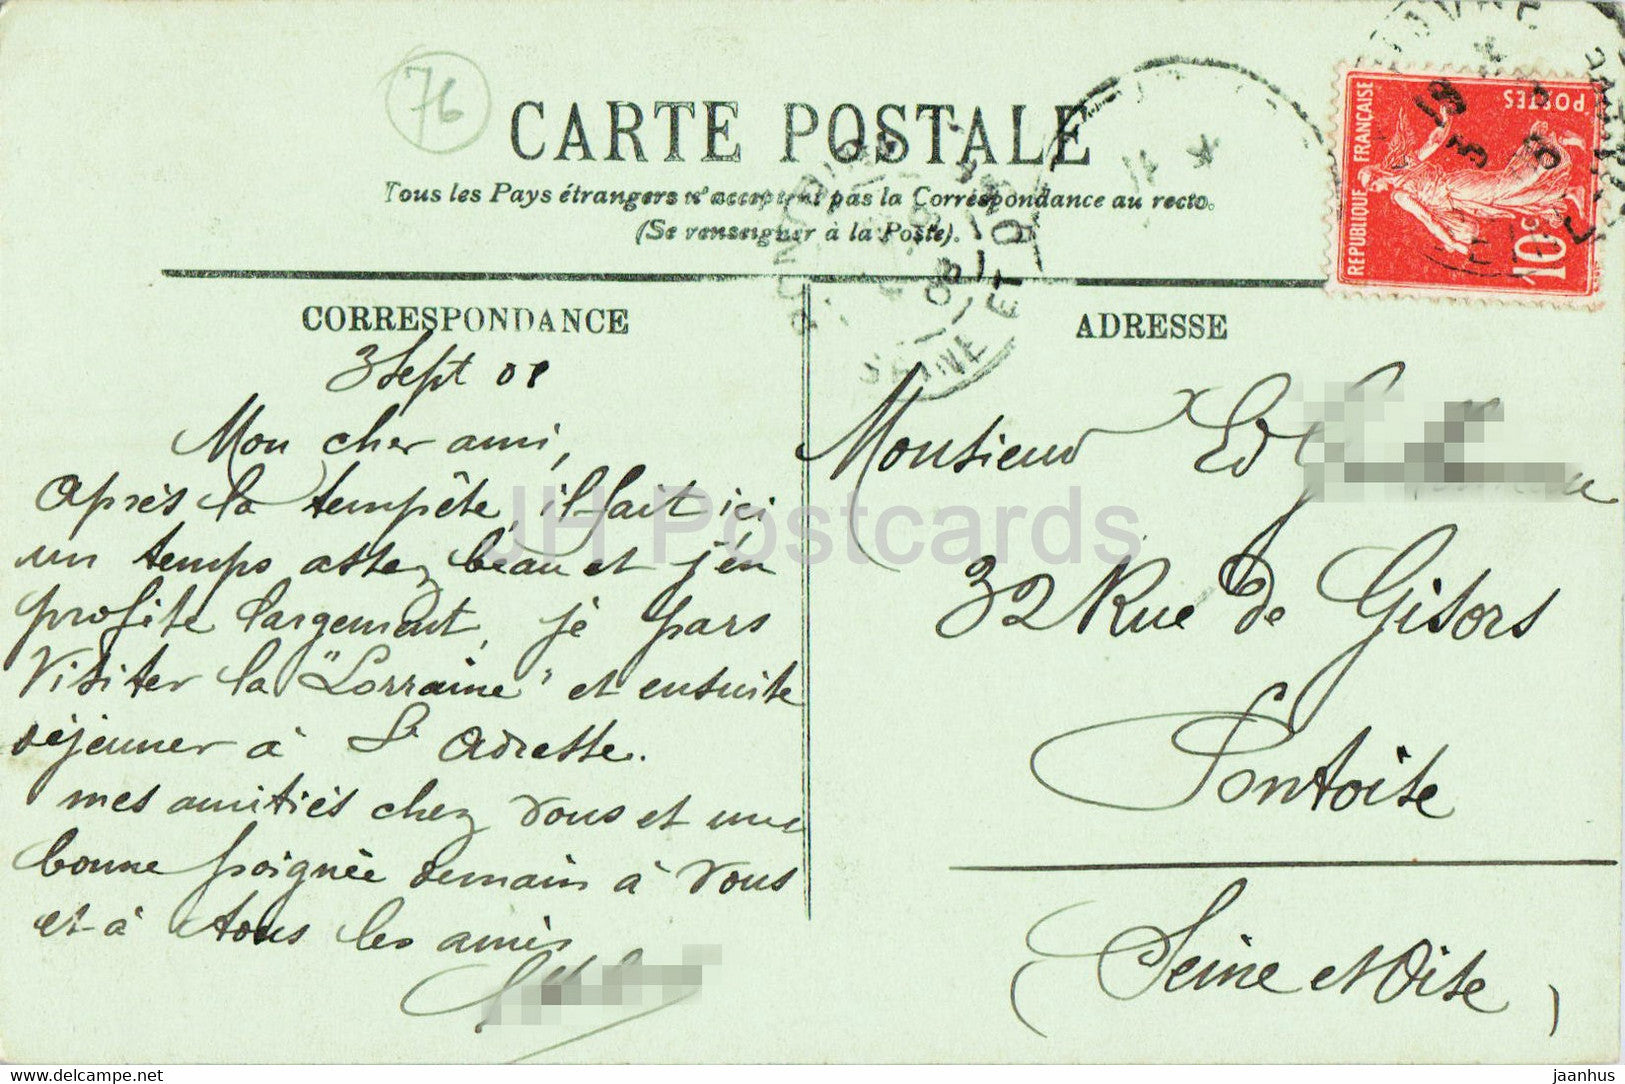 76
CARTE POSTALE
Tous les Pays étrangers n'acceptent pas la Correspondance au recto.
(Se renseigner à la Poste).
REPUBLIQUE FRANÇAISE
POSTES
10c
CORRESPONDANCE
3 Sept 08
Mon cher ami,
Après la tempête, il fait ici
un temps assez beau et j'en
profite largement, je pars
visiter la "Lorraine" et ensuite
déjeuner à Ste Adresse.
mes amitiés chez vous et une
bonne poignée demain à vous
et à tous les amis
ADRESSE
Monsieur Ed
32 Rue de Gisors
Pontoise
(Seine et Oise)
SEINE ET OISE
JH Postcards
www.delcampe.net
jaanhus